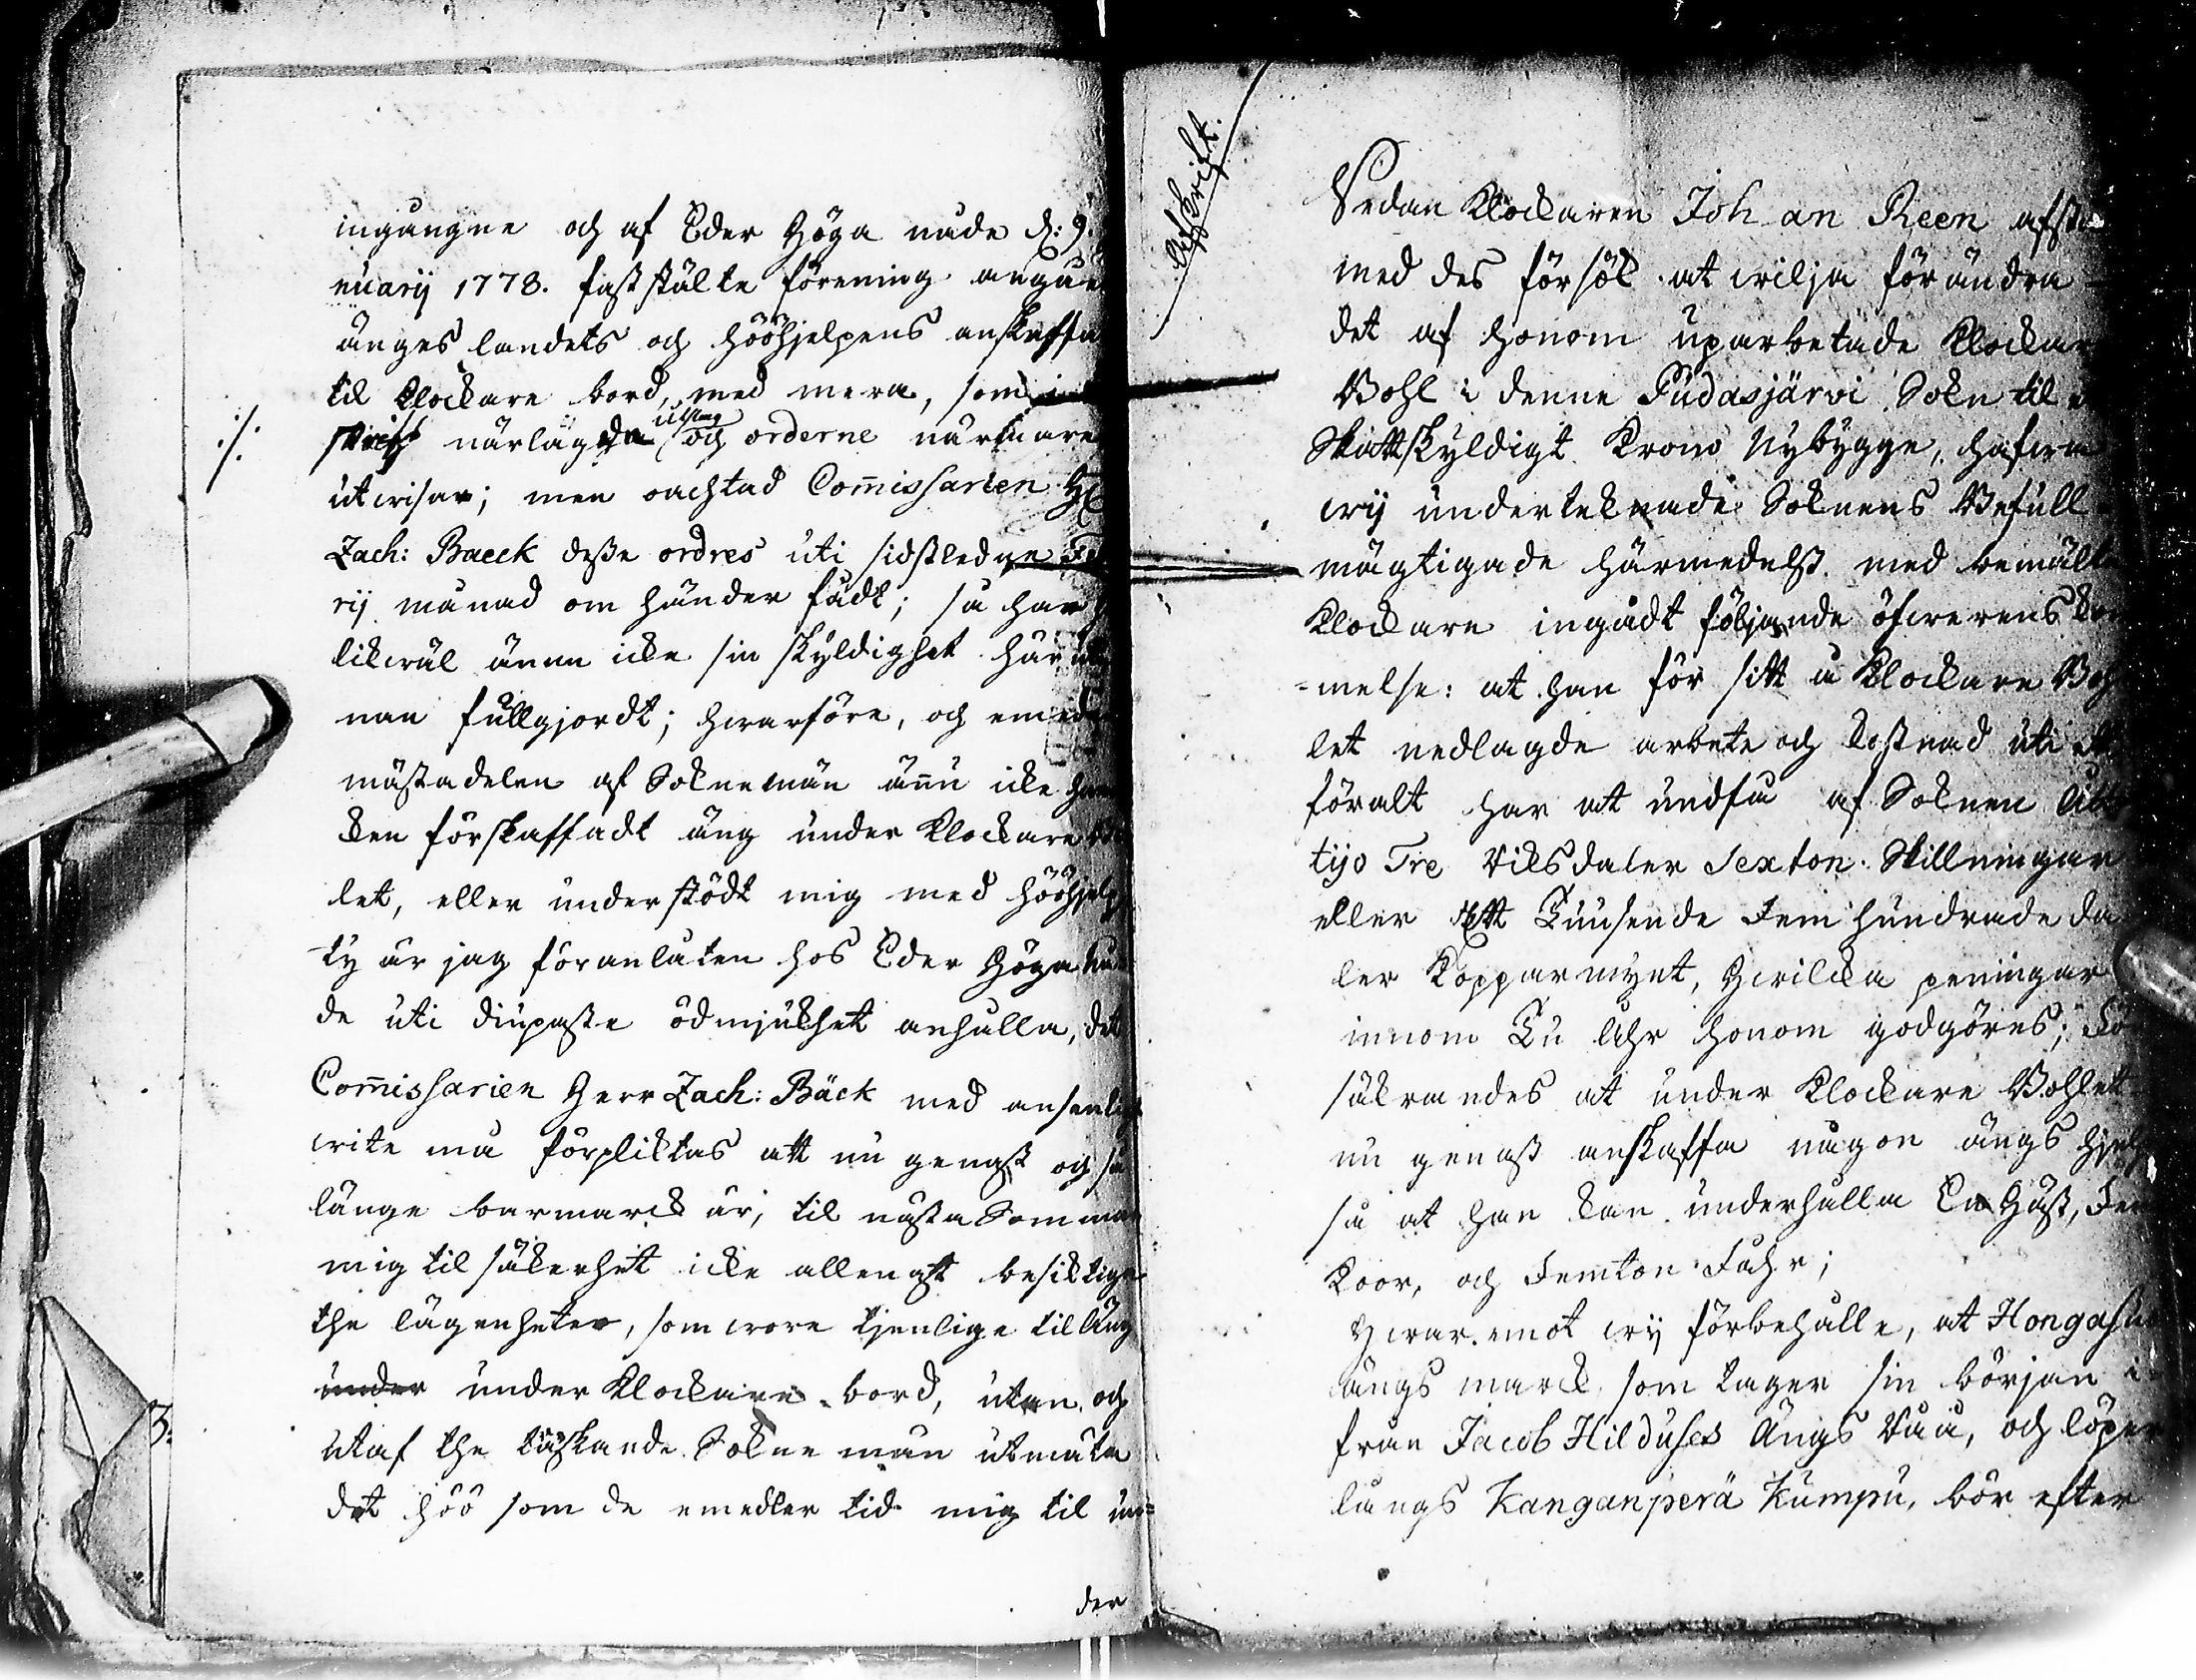 ingångne och af Eder Höga nåde d: 9.
nuarij 1778. fastställte förening angåe
ängeslandets och hööhjelpens anskaffa
til Klockare bord, med mera, som
./. närlagda utslag och orderne närmare
utwisar; men oachtad Com̄issarien H
Zach: Baeck desse ordres uti sidstledne Fe
rij månad om händer fådt; så har
likwäl ännu icke sin skyldighet här
nan fullgjordt; hwarföre, och emeda
mästadelen af Soknemän än̄u icke har
ken förskaffadt äng under Klockare
let, eller understödt mig med hööhjelp
ty är jag föranlåten hos Eder Höga nå
de uti diupaste ödmjukhet anhålla, det
Com̄issarien Herr Zach: Bäck med ansenligt
wite må förpliktas att nu genast och så
länge barmarck är, til nästa Sommar
mig til säkerhet icke allenast besiktiga
the lägenheter, som wore tjenlige til äng
under under Klockare bord, utan och
utaf the tredskande Sokne män utmäta
det höö som de emedler tid mig til un=
der
3.
Afskrift.
Sedan Klockaren Johan Reen afstå
med des försök at wilja förändra
det af honom uparbetade Klockar
Bohl i denne Pudasjärvi Sokn til e
Skattskyldigt Krono Nybygge, hafwa
wij underteknade Soknens Befull
mägtigade härmedelst med bemälte
Klockare ingådt följande öfwerenskom
-melse: at han för sitt å Klockare Boh
let nedlagde arbete och kostnad uti ett
föralt har at undfå af Soknen Åtta
tijo Tre Riksdaler Sexton Skillningar
eller Ett Tuusende Fem hundrade da
ler Kopparmynt, hwilcka peningar
innom Tu Åhr honom godgöres; Fö
säkrandes at under Klockare Bohlet
nu genast anskaffa någon ängs hjelp
så at han kan underhålla En Häst, Fem
Koor, och Femton Fåhr;
Hwar emot wij förbehålle, at Hongasu
ängs marck, som tager sin början i
från Jacob Hilduses Ängs Råå, och löper
längs Kanganperä Kumpu, bör efter